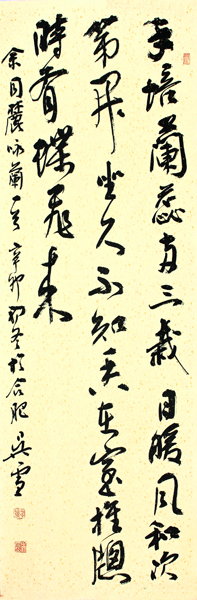 手培蘭蕊兩三栽日暖風和次
第開坐久不知香在室推窗
時有蝶飛來
余同麓咏蘭一首辛卯初冬於合肥吳雪